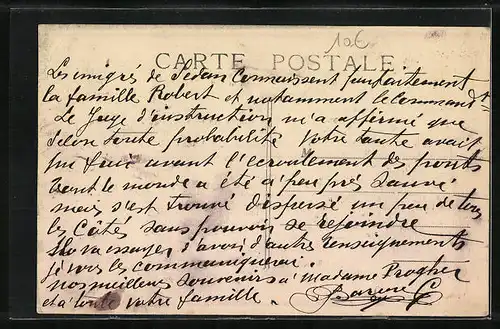 10€
CARTE POSTALE
Les émigrés de Sedan connaissent parfaitement
la famille Robert et notamment le Command^t.
Le Juge d'instruction m'a affirmé que
selon toute probabilité votre tante avait
pu fuir avant l'écroulement des ponts
Tout le monde a été à peu près sauvé
mais s'est trouvé dispersé un peu de tous
les côtés sans pouvoir se rejoindre
d'avoir d'autres renseignements
je vous les communiquerai.
nos meilleurs souvenirs à Madame
et à toute votre famille.